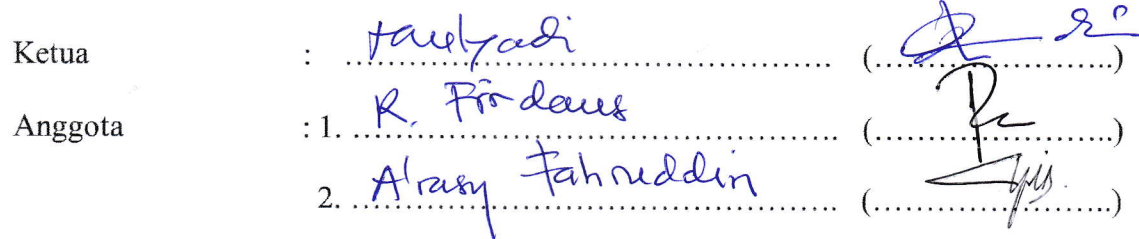 Ketua : ................................ (................................)
Anggota : 1. R. Firdaus (................................)
2. A'rasy Fahruddin (................................)